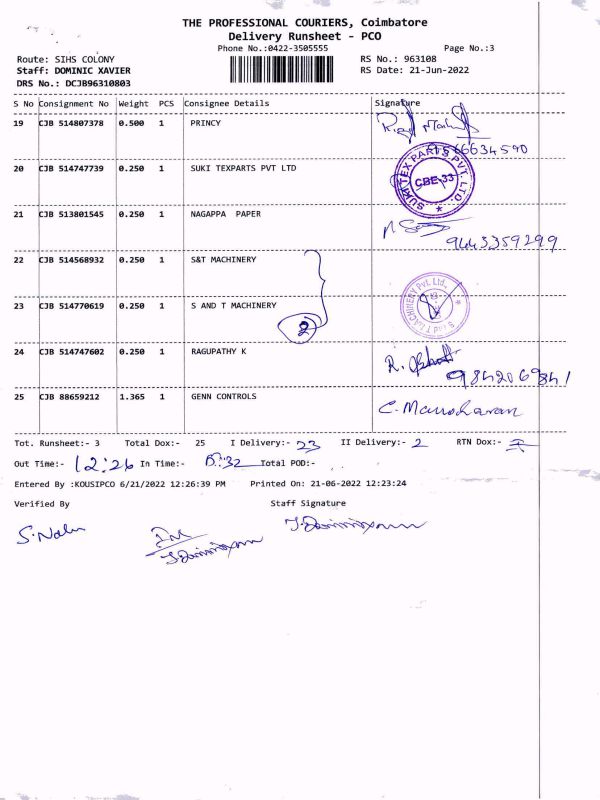 THE PROFESSIONAL COURIERS, Coimbatore
Delivery Runsheet - PCO
Phone No.:0422-3505555 Page No.:3
Route: SIHS COLONY RS No.: 963108
Staff: DOMINIC XAVIER RS Date: 21-Jun-2022
DRS No.: DCJB96310803
S No Consignment No Weight PCS Consignee Details Signature
19 CJB 514807378 0.500 1 PRINCY
66634590
20 CJB 514747739 0.250 1 SUKI TEXPARTS PVT LTD
SUKI TEX PARTS PVT. LTD. CBE-33
21 CJB 513801545 0.250 1 NAGAPPA PAPER
9443359299
22 CJB 514568932 0.250 1 S&T MACHINERY
23 CJB 514770619 0.250 1 S AND T MACHINERY
2
24 CJB 514747602 0.250 1 RAGUPATHY K
9842069841
25 CJB 88659212 1.365 1 GENN CONTROLS
C. Manoharan
Tot. Runsheet:- 3 Total Dox:- 25 I Delivery:- 23 II Delivery:- 2 RTN Dox:-
Out Time:- 12:26 In Time:- Total POD:-
Entered By :KOUSIPCO 6/21/2022 12:26:39 PM Printed On: 21-06-2022 12:23:24
Verified By Staff Signature